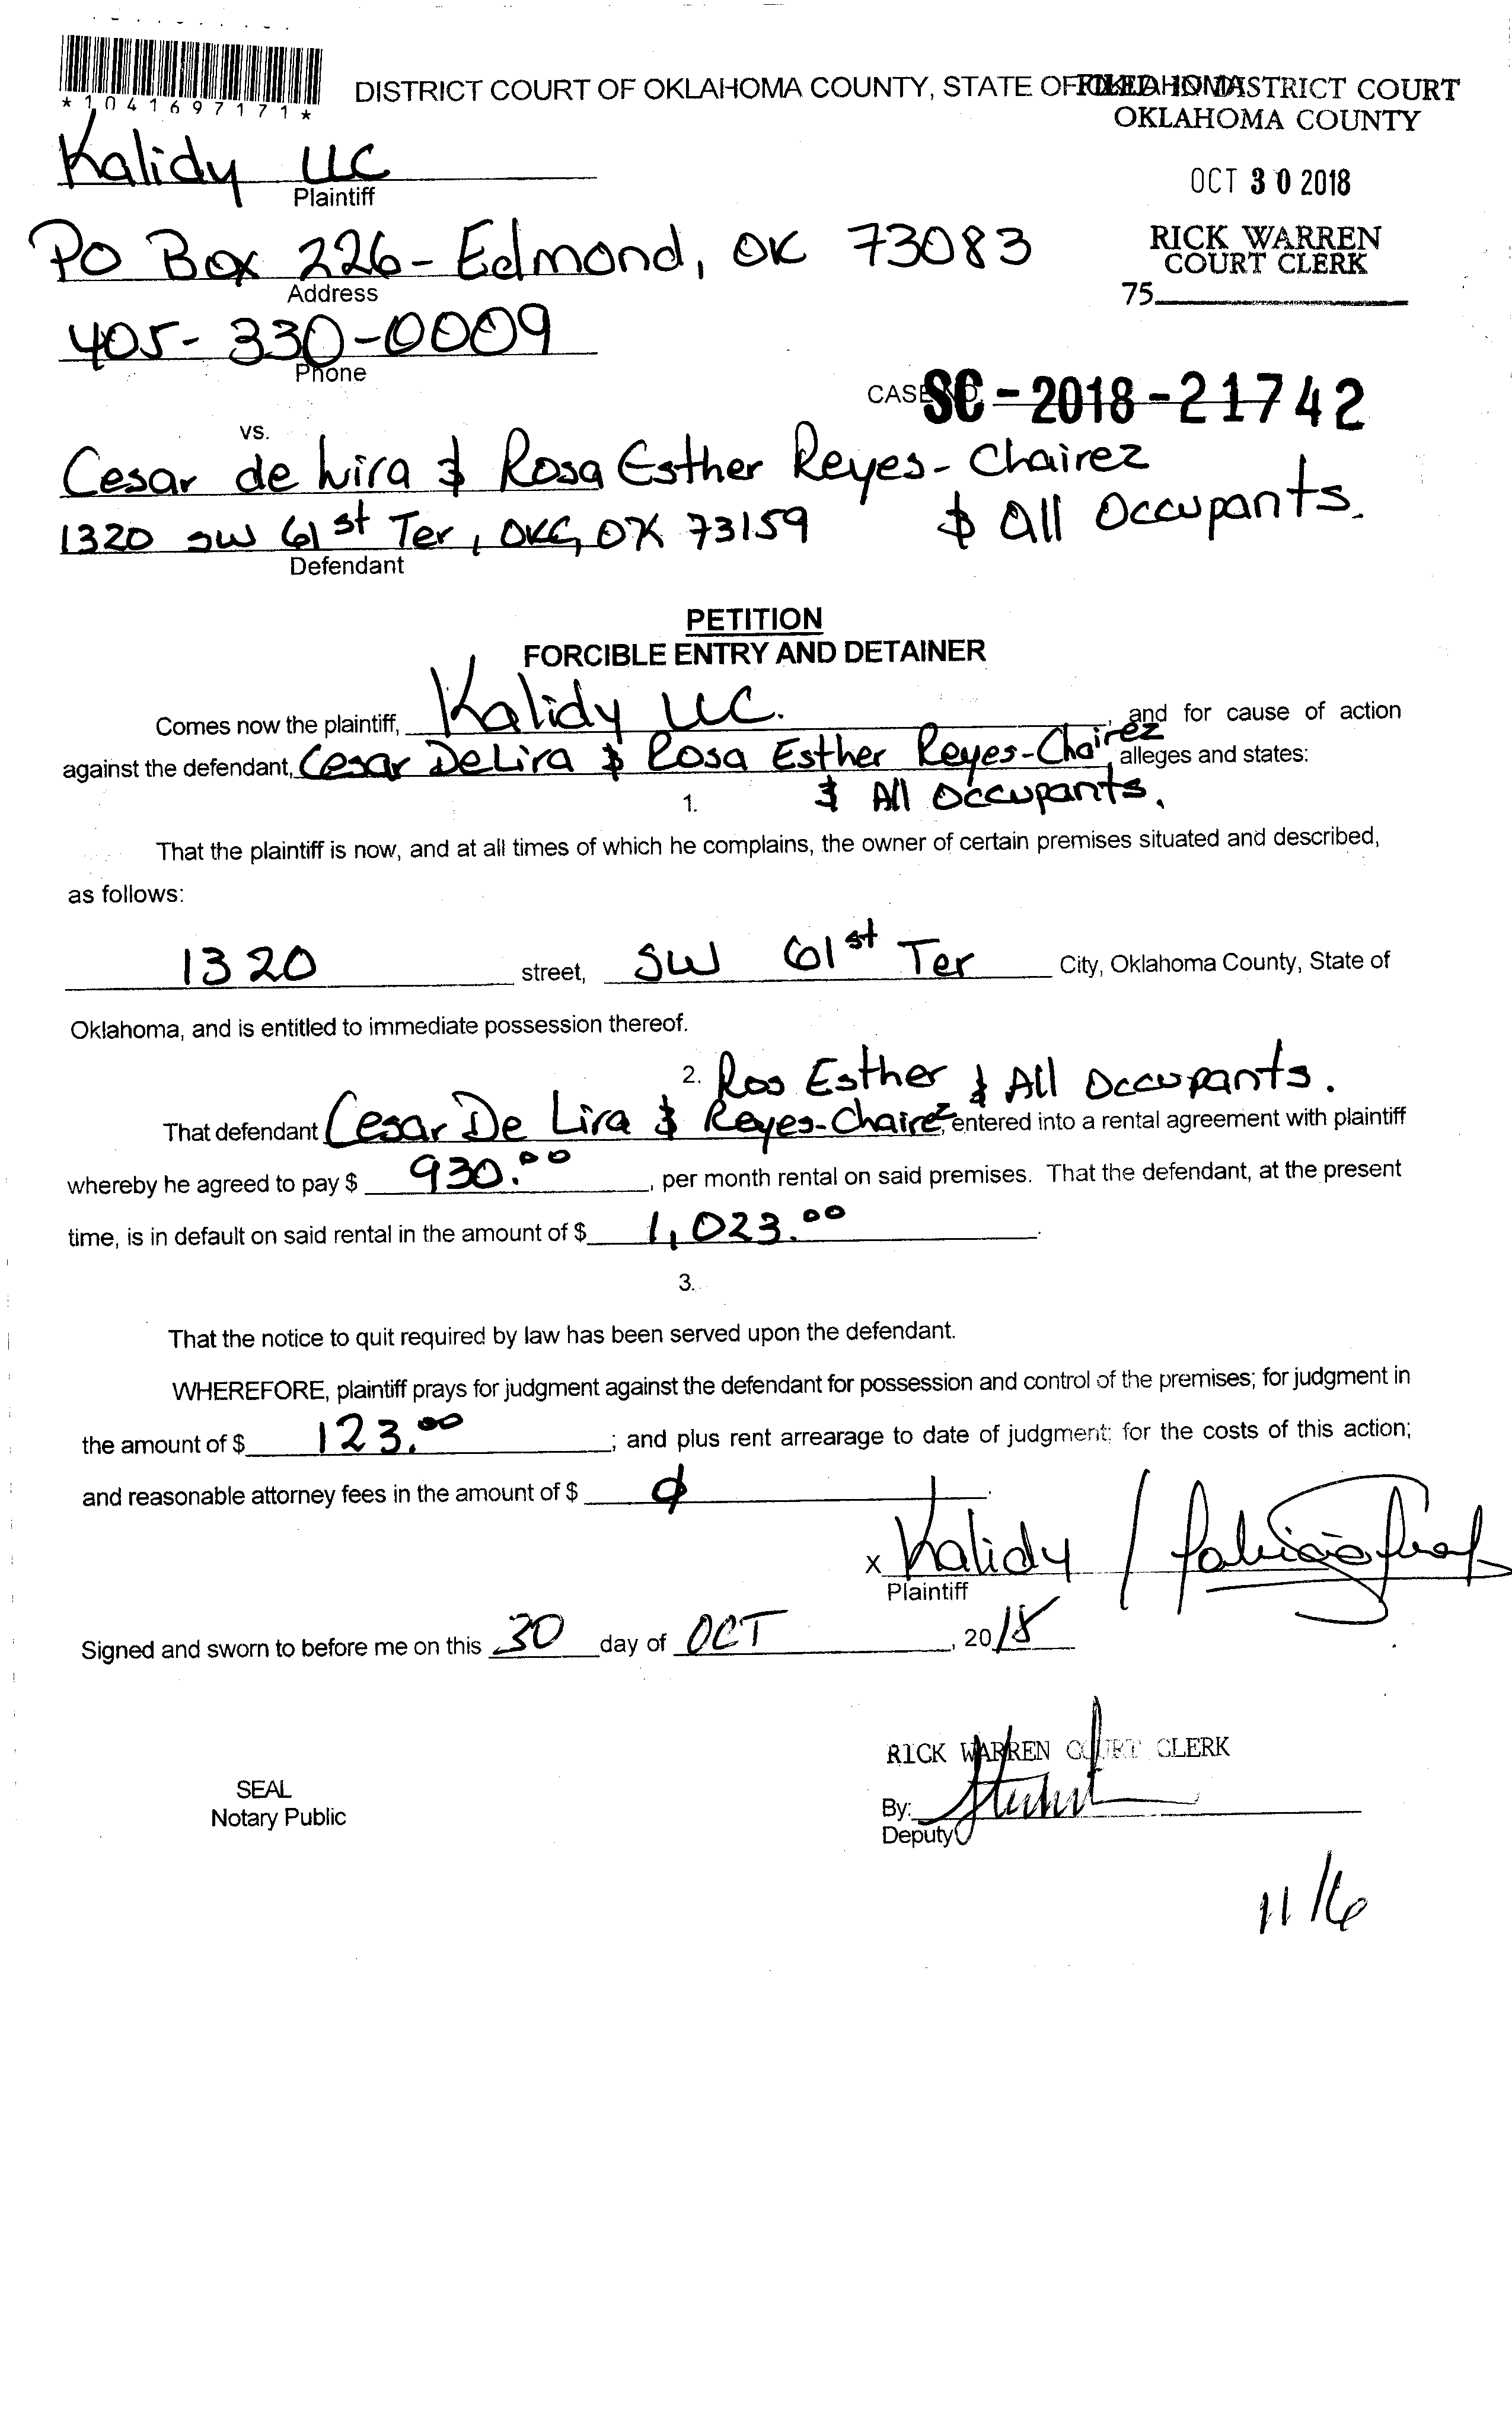 *1041697171*
DISTRICT COURT OF OKLAHOMA COUNTY, STATE OF OKLAHOMA
FILED IN DISTRICT COURT
OKLAHOMA COUNTY
OCT 30 2018
RICK WARREN
COURT CLERK
75
Kalidy LLC
Plaintiff
PO Box 226 - Edmond, OK 73083
Address
405-330-0009
Phone
CASE NO. SC-2018-21742
vs.
Cesar de Lira & Rosa Esther Reyes-Chairez
& All Occupants.
1320 SW 61st Ter, OKC, OK 73159
Defendant
PETITION
FORCIBLE ENTRY AND DETAINER
Comes now the plaintiff, Kalidy LLC. , and for cause of action
against the defendant, Cesar DeLira & Rosa Esther Reyes-Chairez, alleges and states:
& All Occupants.
1.
That the plaintiff is now, and at all times of which he complains, the owner of certain premises situated and described,
as follows:
1320 street, SW 61st Ter City, Oklahoma County, State of
Oklahoma, and is entitled to immediate possession thereof.
2. Ros Esther & All Occupants.
That defendant Cesar De Lira & Reyes-Chairez, entered into a rental agreement with plaintiff
whereby he agreed to pay $ 930.00 , per month rental on said premises. That the defendant, at the present
time, is in default on said rental in the amount of $ 1,023.00 .
3.
That the notice to quit required by law has been served upon the defendant.
WHEREFORE, plaintiff prays for judgment against the defendant for possession and control of the premises; for judgment in
the amount of $ 123.00 ; and plus rent arrearage to date of judgment; for the costs of this action;
and reasonable attorney fees in the amount of $ ϕ .
x Kalidy /
Plaintiff
Signed and sworn to before me on this 30 day of OCT , 2018
RICK WARREN COURT CLERK
SEAL
Notary Public
By:
Deputy
11/6